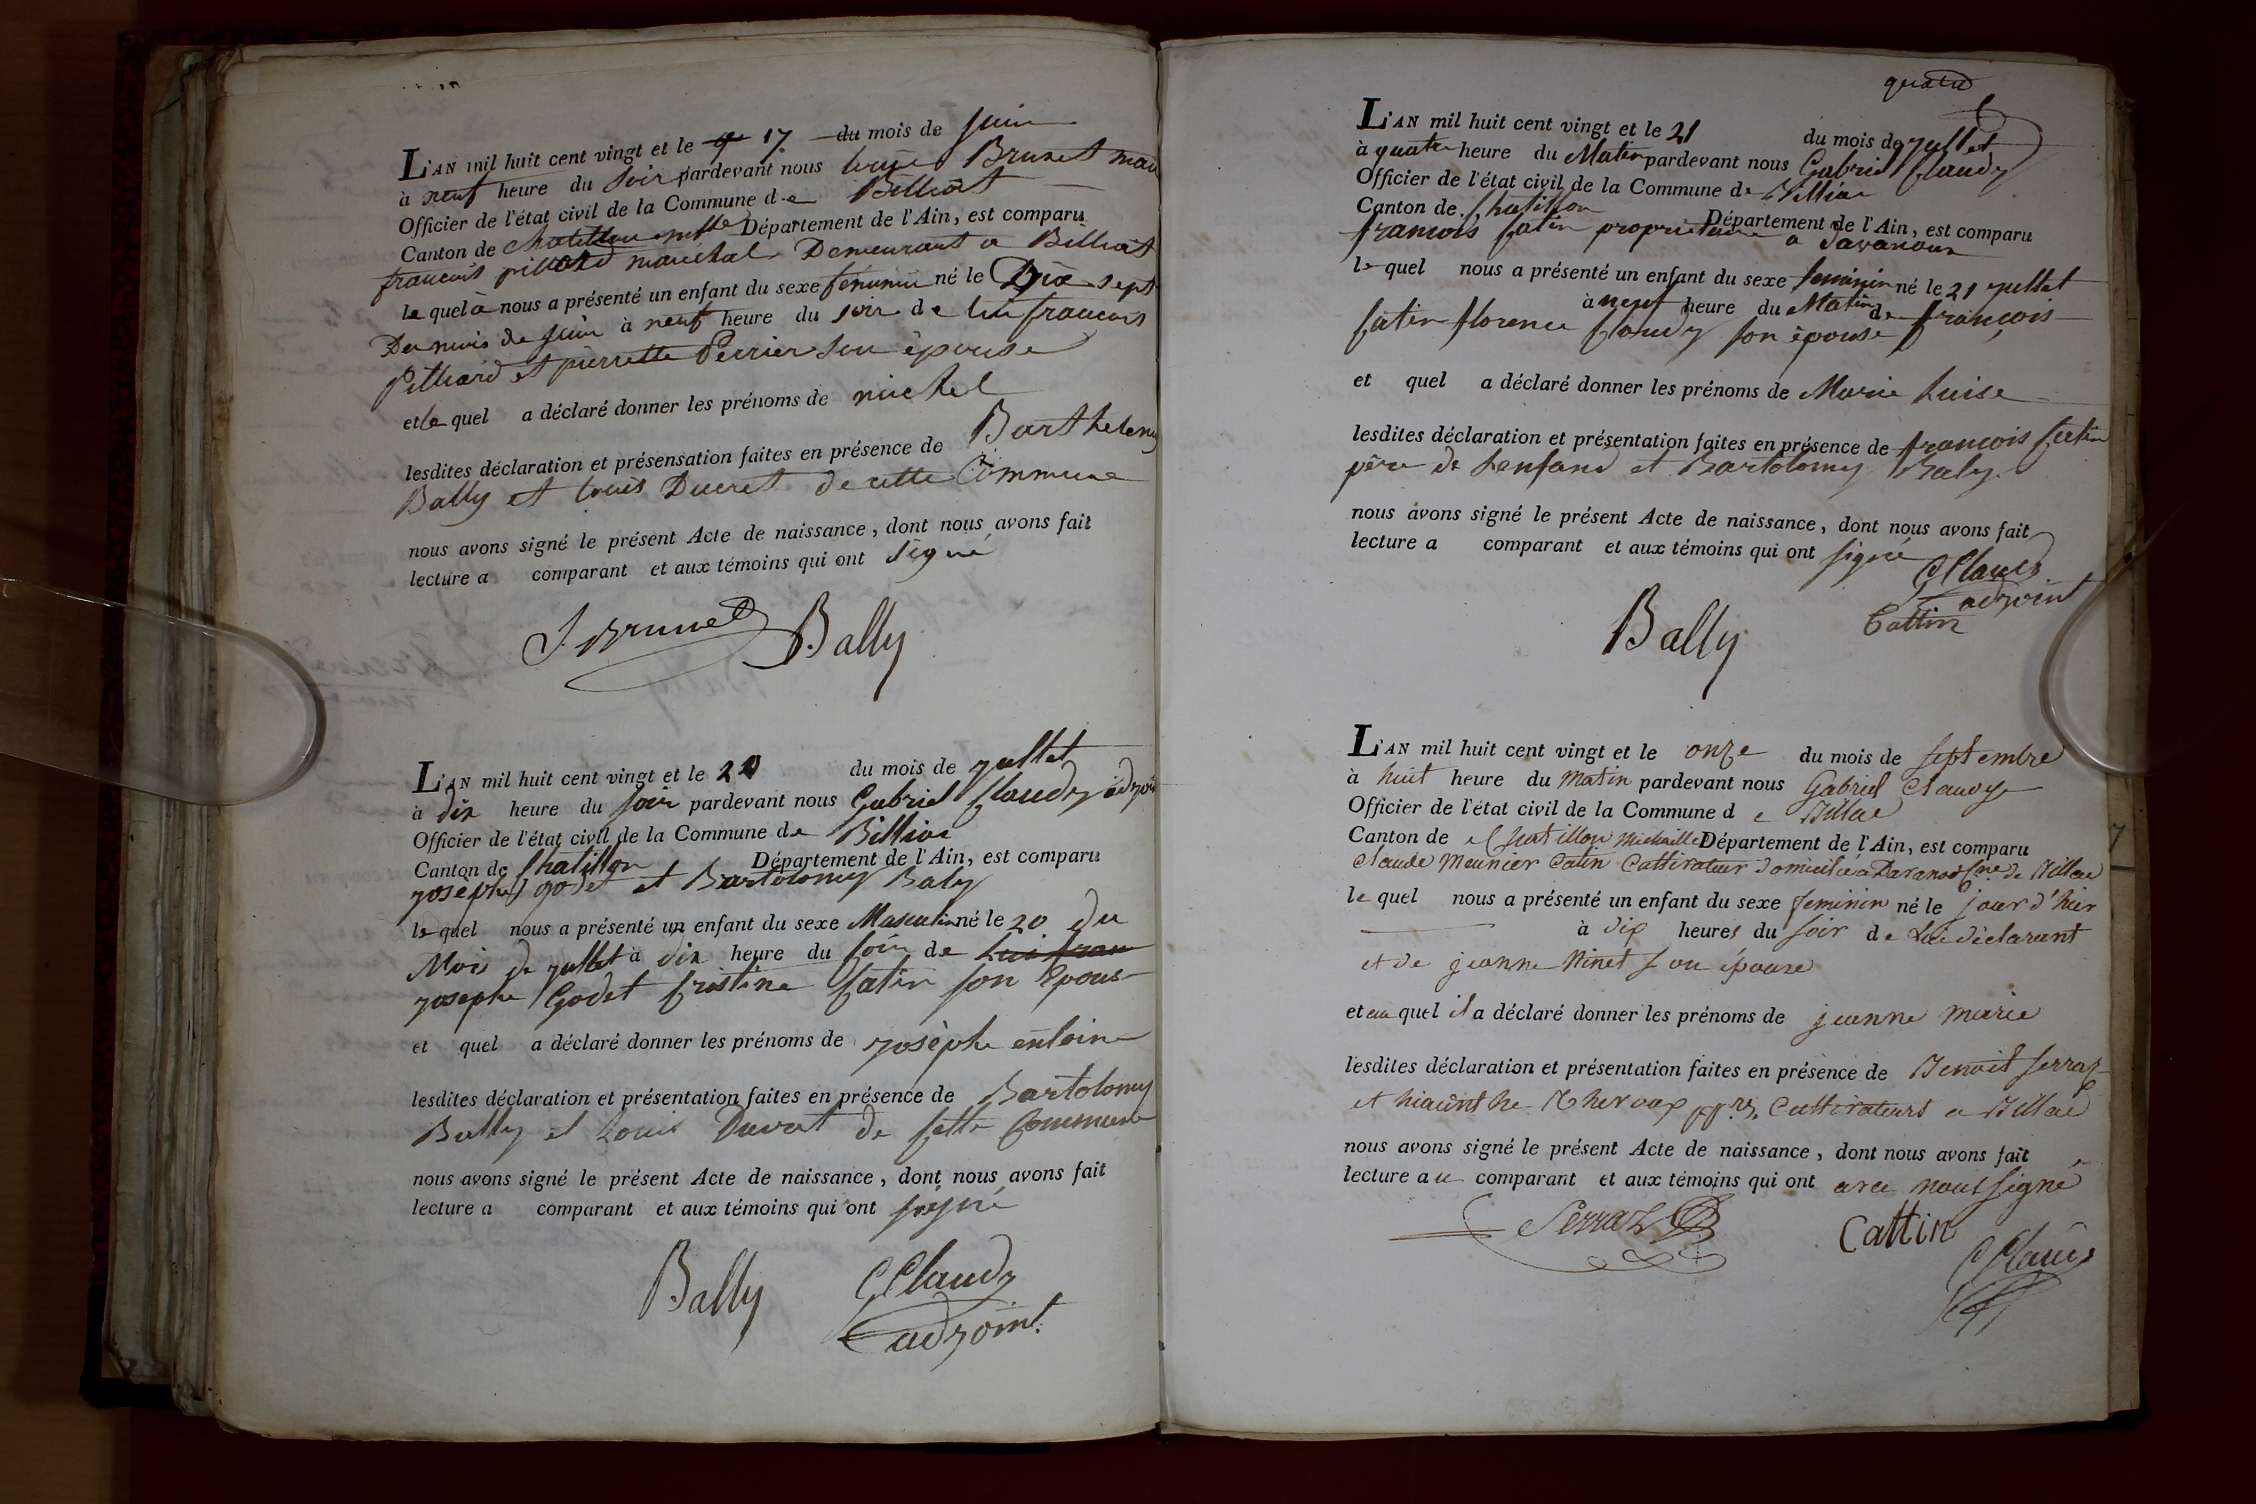 L'AN mil huit cent vingt et le 17 du mois de juin
à neuf heure du soir pardevant nous Brunet
Officier de l'état civil de la Commune de Billiat
Canton de Département de l'Ain, est comparu
francois maréchal Demeurant a Billiat
le quel à nous a présenté un enfant du sexe féminin né le Dix sept
Du mois de juin à neuf heure du soir de lui francois
Pilliard et pierrette Perrier son épouse
et le quel a déclaré donner les prénoms de michel
lesdites déclaration et présensation faites en présence de Barthelemy
Bally et louis Ducret de cette Commune
nous avons signé le présent Acte de naissance, dont nous avons fait
lecture a comparant et aux témoins qui ont signé
J. Brunet Bally
L'AN mil huit cent vingt et le 20 du mois de jullet
à dix heure du soir pardevant nous Gabriel Claudy
Officier de l'état civil de la Commune de Billiac
Canton de Chatillon Département de l'Ain, est comparu
josephe godet et Bartolomy Baly
le quel nous a présenté un enfant du sexe Masculin né le 20 du
Mois de jullet à dix heure du soir de
josephe Godet Cristine Catin son Epouse
et quel a déclaré donner les prénoms de josèphe entoine
lesdites déclaration et présentation faites en présence de Bartolomy
Bally et Louis de Cette Commune
nous avons signé le présent Acte de naissance, dont nous avons fait
lecture a comparant et aux témoins qui ont signé
Bally GClaudy
adjoint
quatre
L'AN mil huit cent vingt et le 21 du mois de jullet
à quatre heure du Matin pardevant nous Gabriel Claudy
Officier de l'état civil de la Commune de Billiac
Canton de Chatillon Département de l'Ain, est comparu
francois Catin propriétaire a Davanoux
le quel nous a présenté un enfant du sexe feminin né le 21 jullet
à neuf heure du Matin de François
Catin florence Claudy son épouse
et quel a déclaré donner les prénoms de Marie Luise
lesdites déclaration et présentation faites en présence de francois Catin
père de Lenfand et Bartolomy Baly
nous avons signé le présent Acte de naissance, dont nous avons fait
lecture a comparant et aux témoins qui ont signé
GClaudy
adjoint
Bally Cattin
L'AN mil huit cent vingt et le onze du mois de septembre
à huit heure du matin pardevant nous Gabriel Claudy
Officier de l'état civil de la Commune d e Billac
Canton de Chatillon Michaille Département de l'Ain, est comparu
Claude Meunier Catin Cultivateur domicilié a Davanod Cne de Billac
le quel nous a présenté un enfant du sexe feminin né le jour d'hier
à dix heures du soir de Lui déclarant
et de jeanne Ninet son épouse
et au quel il a déclaré donner les prénoms de jeanne marie
lesdites déclaration et présentation faites en présence de Benoit Serraz
et hiacinthe Cultivateurs a Billac
nous avons signé le présent Acte de naissance, dont nous avons fait
lecture au comparant et aux témoins qui ont avec nous signé
Serraz Cattin
GClaudy